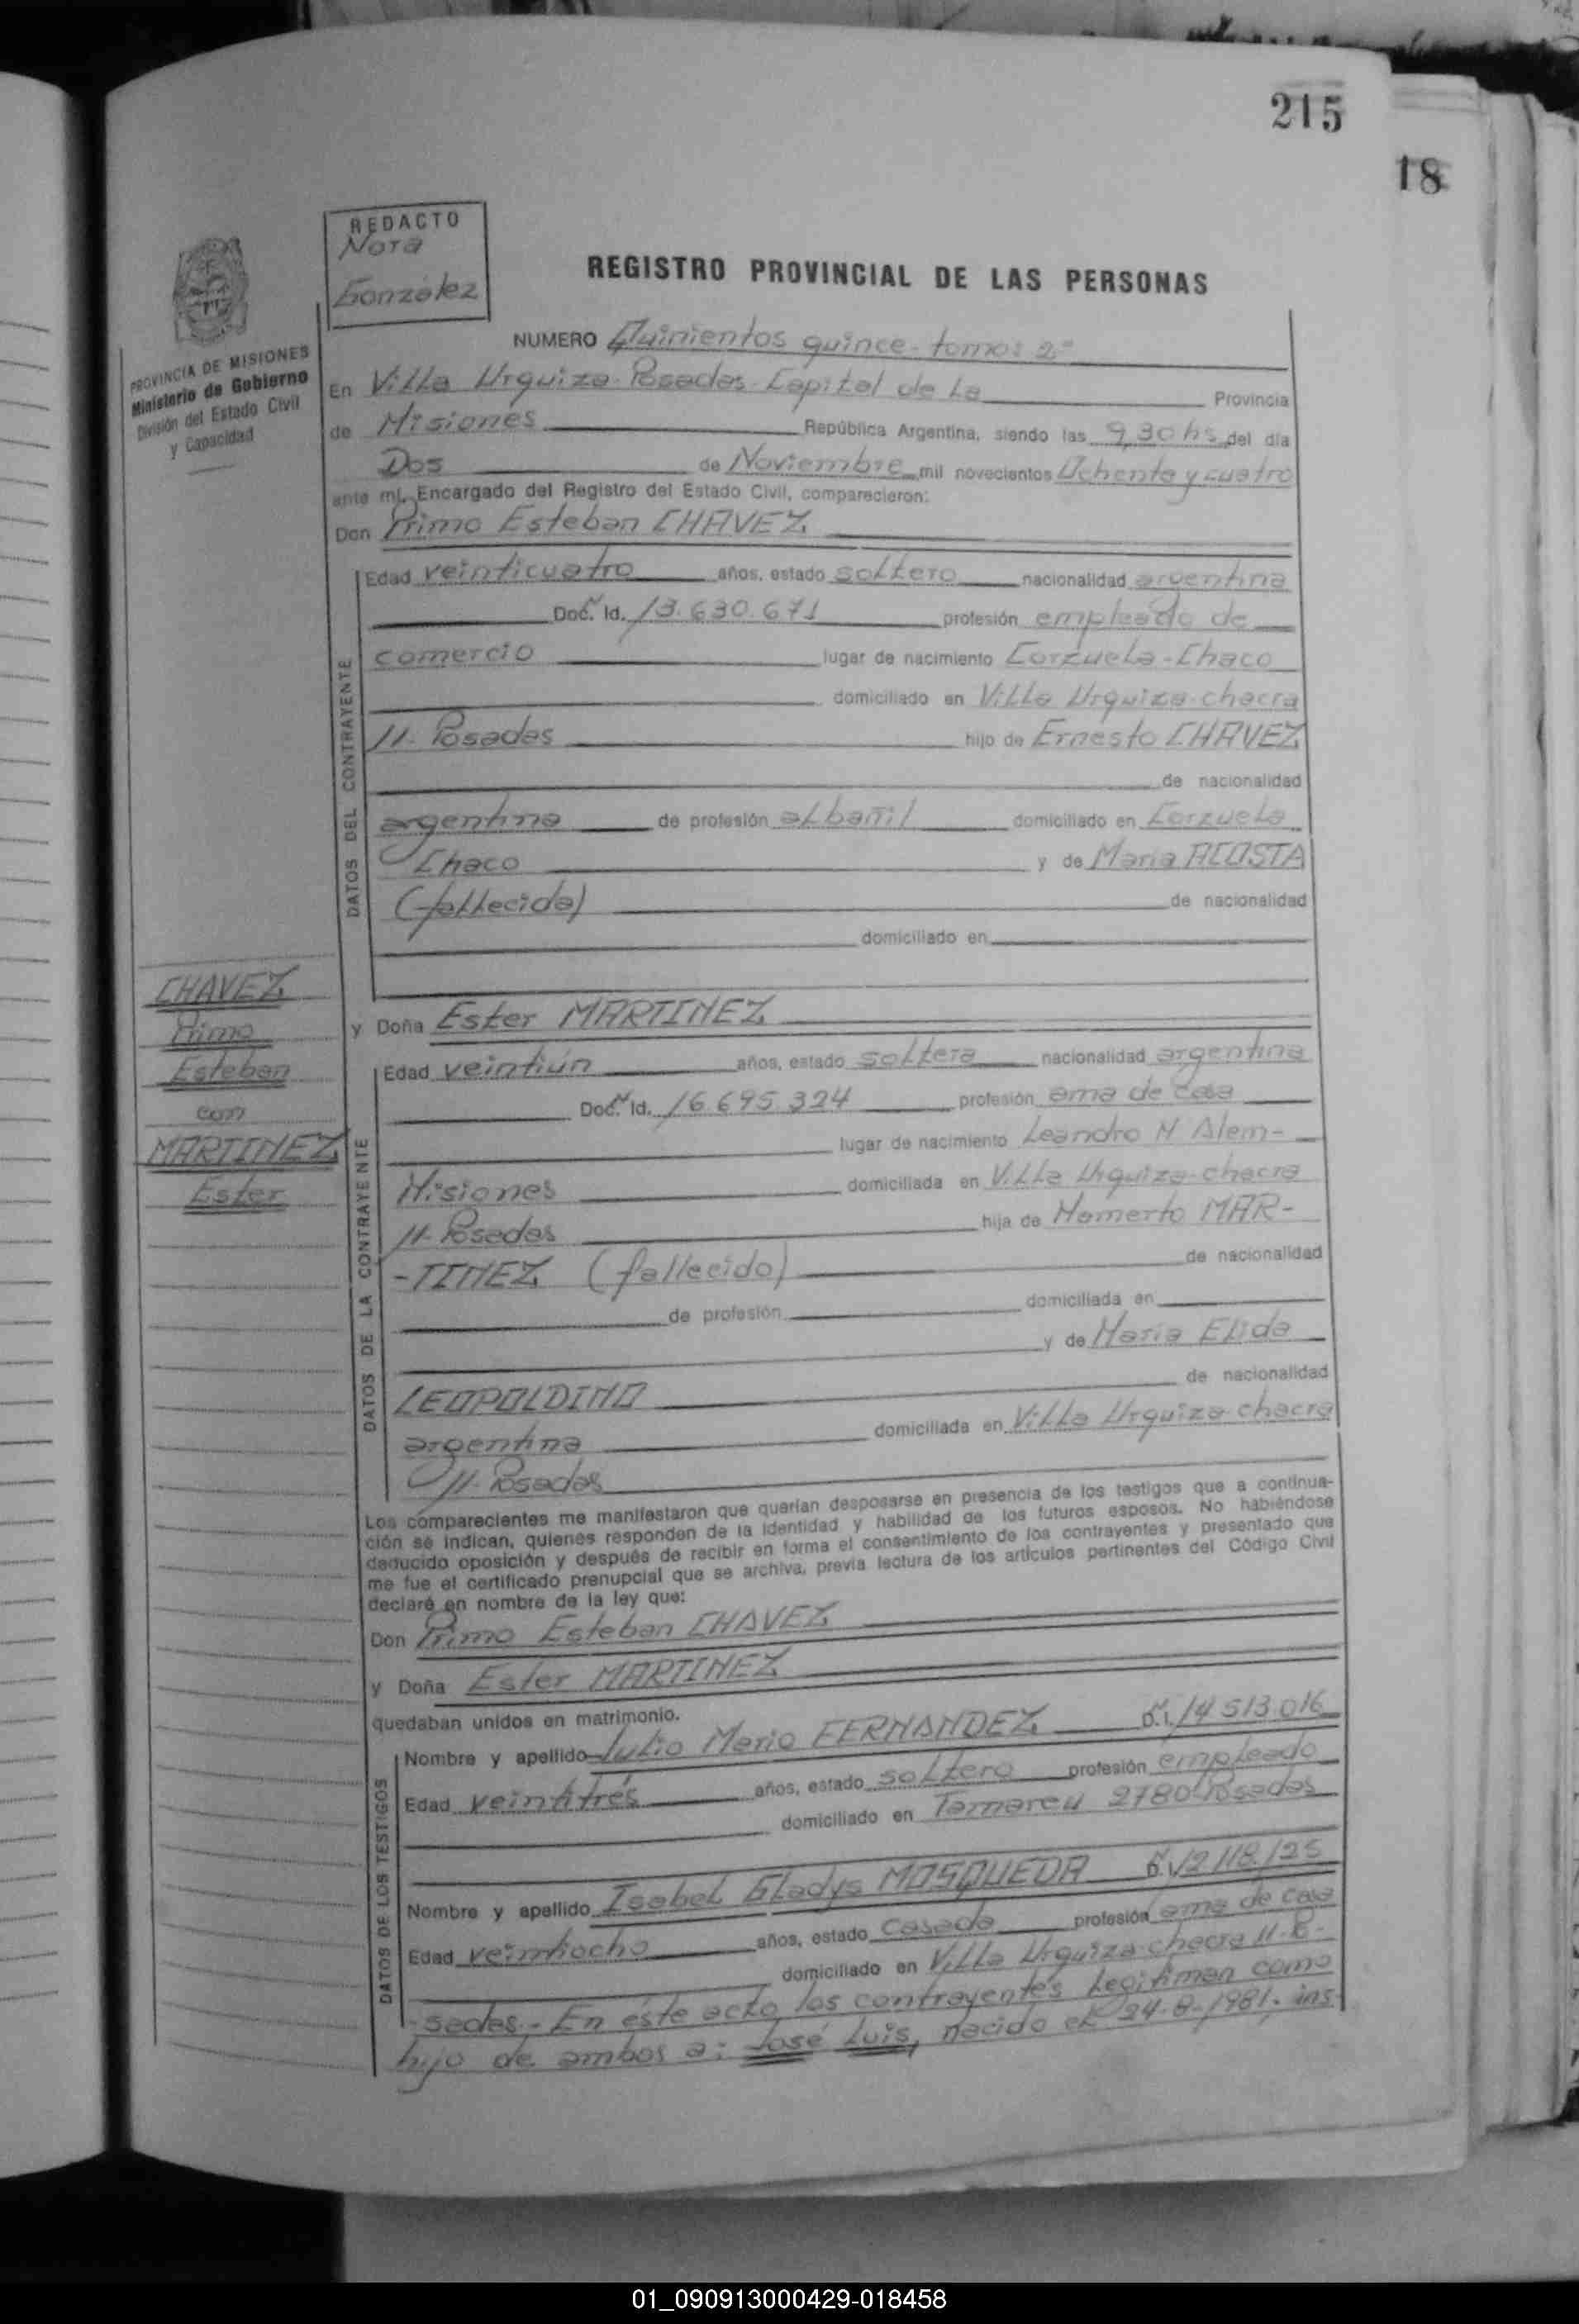 215
18
REDACTO
Nora
González
REGISTRO PROVINCIAL DE LAS PERSONAS
PROVINCIA DE MISIONES
Ministerio de Gobierno
División del Estado Civil
y Capacidad
NUMERO Quinientos quince - tomo: 2º
En Villa Urquiza - Posadas - Capital de La Provincia
de Misiones República Argentina, siendo las 9,30 hs del día
Dos de Noviembre mil novecientos Ochenta y cuatro
ante mí, Encargado del Registro del Estado Civil, comparecieron:
Don Primo Esteban CHAVEZ
DATOS DEL CONTRAYENTE
Edad veinticuatro años, estado soltero nacionalidad argentina
Doc. Id. 13.630.671 profesión empleado de
comercio lugar de nacimiento Corzuela - Chaco
domiciliado en Villa Urquiza - chacra
11 - Posadas hijo de Ernesto CHAVEZ
de nacionalidad
argentina de profesión albañil domiciliado en Corzuela
Chaco y de Maria ACOSTA
(fallecida) de nacionalidad
domiciliado en
CHAVEZ
Primo
Esteban
con
MARTINEZ
Ester
y Doña Ester MARTINEZ
DATOS DE LA CONTRAYENTE
Edad veintiún años, estado soltera nacionalidad argentina
Doc. Id. 16.695.324 profesión ama de casa
lugar de nacimiento Leandro N Alem -
Misiones domiciliada en Villa Urquiza - chacra
11 - Posadas hija de Homerto MAR-
-TINEZ (fallecido) de nacionalidad
de profesión domiciliada en
y de Maria Elida
LEOPOLDINO de nacionalidad
argentina domiciliada en Villa Urquiza - chacra
11 - Posadas
Los comparecientes me manifestaron que querían desposarse en presencia de los testigos que a continua-
ción se indican, quienes responden de la identidad y habilidad de los futuros esposos. No habiéndose
deducido oposición y después de recibir en forma el consentimiento de los contrayentes y presentado que
me fue el certificado prenupcial que se archiva, previa lectura de los artículos pertinentes del Código Civil
declaré en nombre de la ley que:
Don Primo Esteban CHAVEZ
y Doña Ester MARTINEZ
quedaban unidos en matrimonio.
DATOS DE LOS TESTIGOS
Nombre y apellido Julio Mario FERNANDEZ D.I. 14 513.016
Edad veintitrés años, estado soltero profesión empleado
domiciliado en Tamareu 2780 Posadas
Nombre y apellido Isabel Gladys MOSQUEDA D.I. 12 118.125
Edad veintiocho años, estado casada profesión ama de casa
domiciliado en Villa Urquiza - chacra 11 - Po-
-sadas.- En éste acto los contrayentes legitiman como
hijo de ambos a: José Luis, nacido el 24-8-1981. ins
01_090913000429-018458